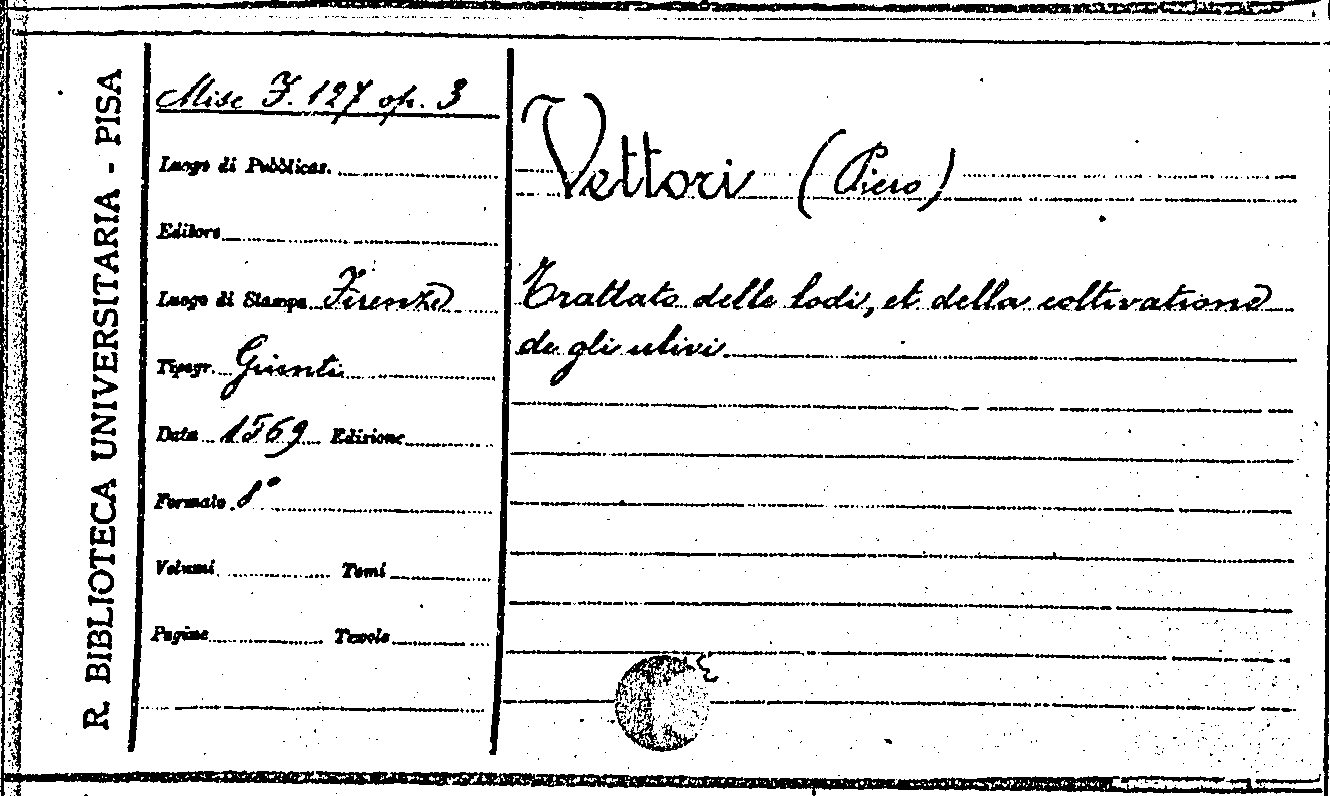 R. BIBLIOTECA UNIVERSITARIA - PISA
Misc F. 127 op. 3
Luogo di Pubblicaz.
Editore
Luogo di Stampa Firenze
Tipogr. Giunti
Data 1569 Edizione
Formato 8°
Volumi Tomi
Pagine Tavole
Vettori (Piero)
Trattato delle lodi, et della coltivatione
de gli ulivi